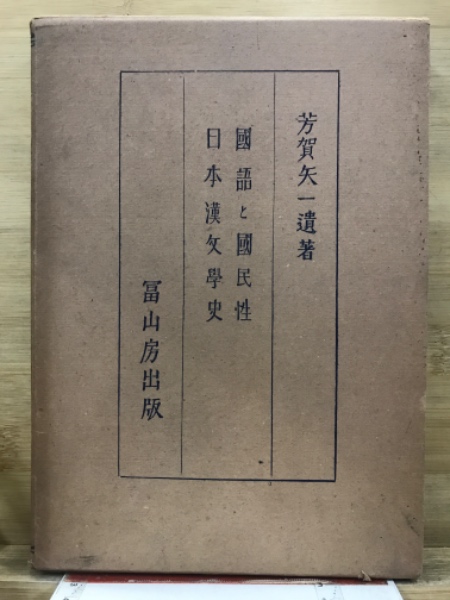 芳賀矢一遺著
國語と國民性
日本漢文學史
冨山房出版